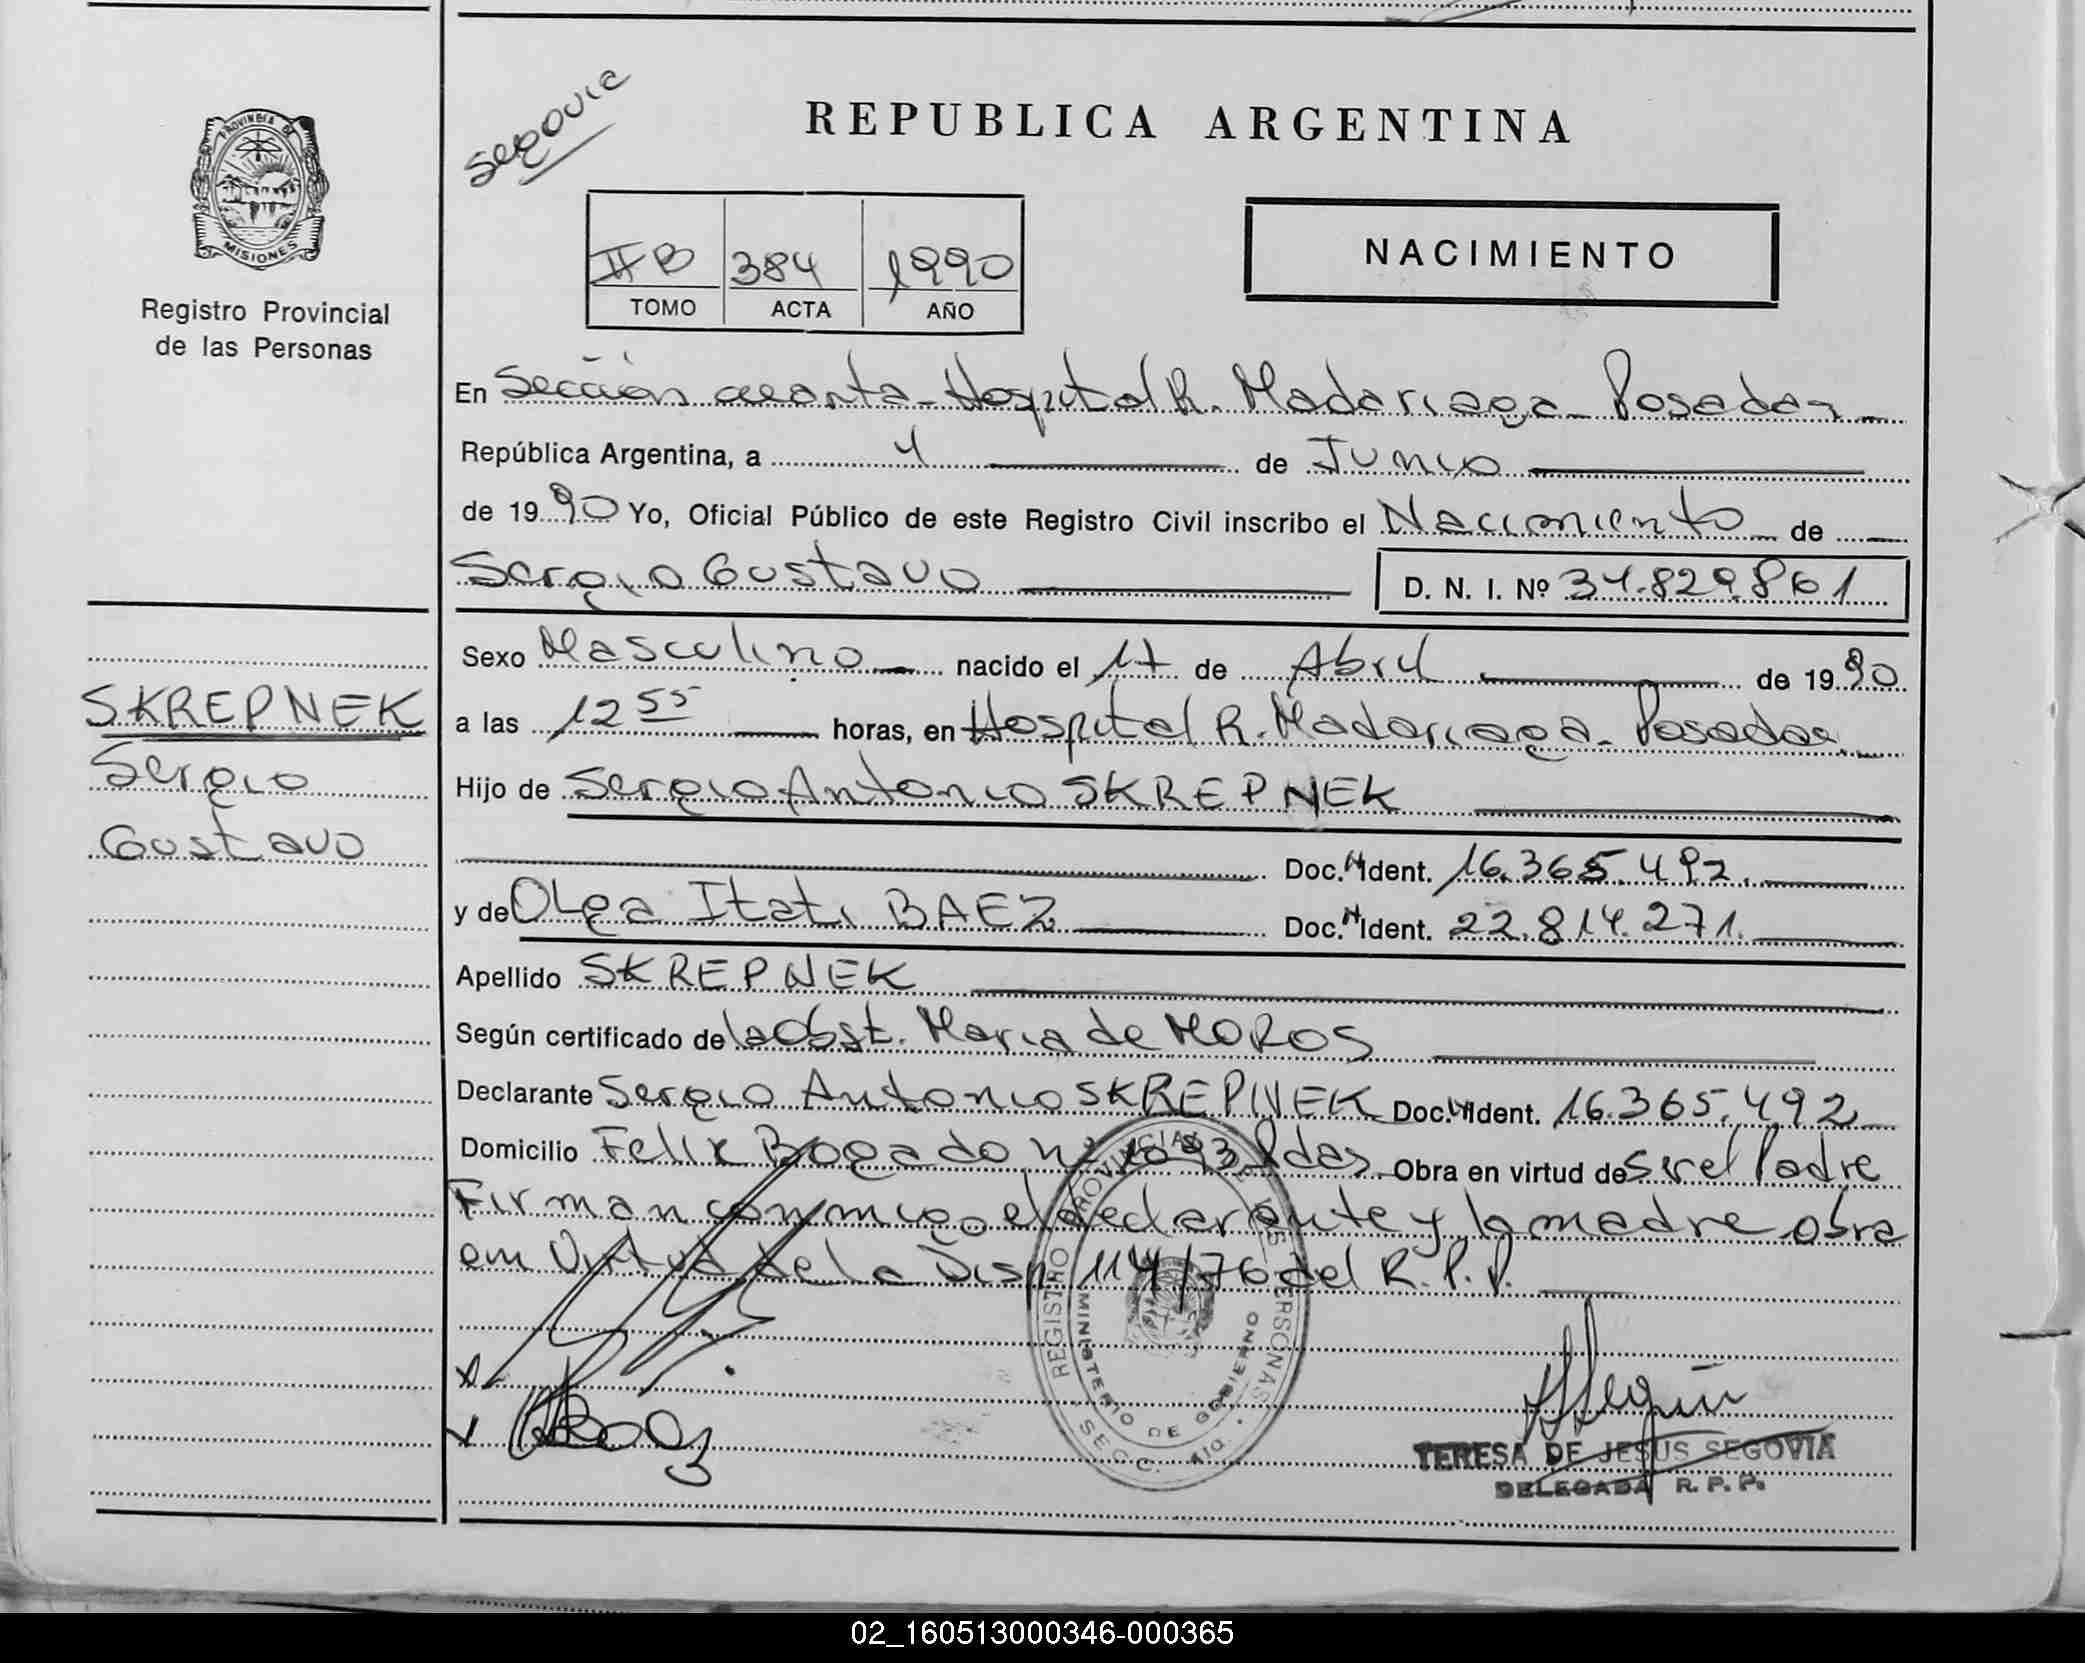 Segovia
REPUBLICA ARGENTINA
PROVINCIA DE
MISIONES
Registro Provincial
de las Personas
II B 384 1990
TOMO ACTA AÑO
NACIMIENTO
En Sección cuarta - Hospital R. Madariaga - Posadas
República Argentina, a 4 de Junio
de 1990 Yo, Oficial Público de este Registro Civil inscribo el Nacimiento de
Sergio Gustavo D. N. I. Nº 34.829.861
Sexo Masculino nacido el 17 de Abril de 1990
SKREPNEK
Sergio
Gustavo
a las 12 55 horas, en Hospital R. Madariaga - Posadas
Hijo de Sergio Antonio SKREPNEK
Doc. N Ident. 16.365.492.
y de Olga Itati BAEZ Doc. N Ident. 22.814.271.
Apellido SKREPNEK
Según certificado de la Obst. Maria de MOROS
Declarante Sergio Antonio SKREPNEK Doc. N Ident. 16.365.492
Domicilio Felix Bogado Nº 1093 Pdas. Obra en virtud de Ser el Padre
Firman conmigo el declarante y la madre obra
em Virtud de la Disp. 114/76 del R.P.P.
REGISTRO PROVINCIAL DE LAS PERSONAS
MINISTERIO DE GOBIERNO
SECC. 4ta.
TERESA DE JESUS SEGOVIA
DELEGADA R. P. P.
02_160513000346-000365